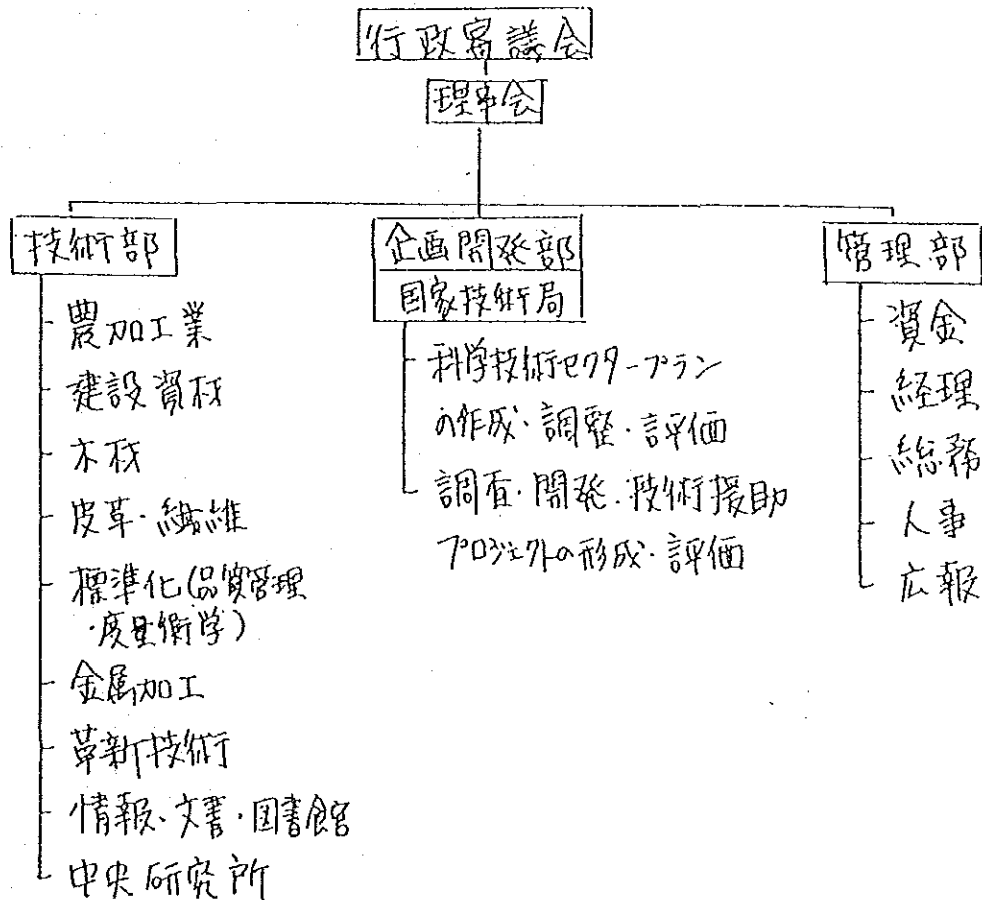 行政審議会
理事会
技術部
農加工業
建設資材
木材
皮革・繊維
標準化(品質管理
・度量衡学)
金属加工
革新技術
情報・文書・図書館
中央研究所
企画開発部
国家技術局
科学技術セクタープラン
の作成・調整・評価
調査・開発・技術援助
プロジェクトの形成・評価
管理部
資金
経理
総務
人事
広報